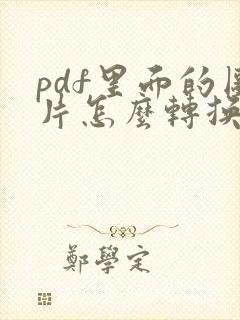 pdf里面的圖
片怎麼轉換
鄭學定